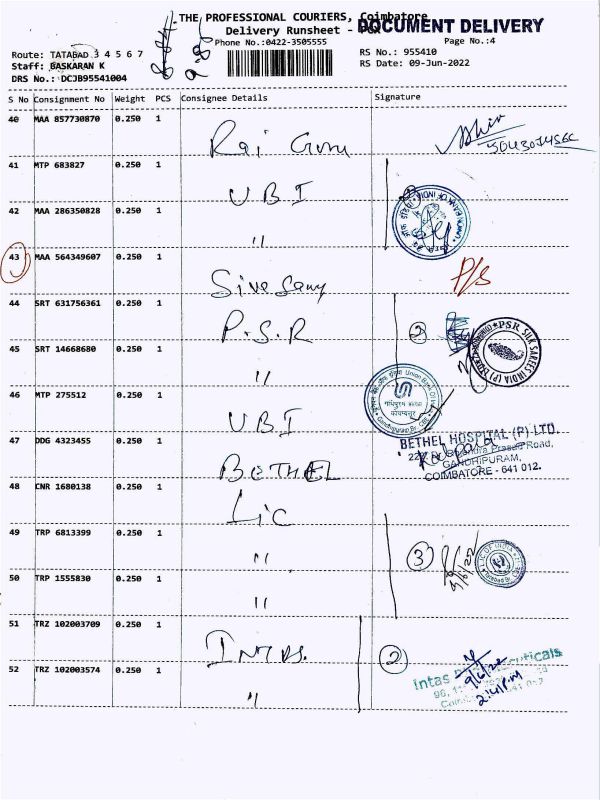 THE PROFESSIONAL COURIERS, Coimbatore
DOCUMENT DELIVERY
Delivery Runsheet -
Phone No.:0422-3505555
Page No.:4
Route: TATABAD 3 4 5 6 7
RS No.: 955410
Staff: BASKARAN K
RS Date: 09-Jun-2022
DRS No.: DCJB95541004
S No Consignment No Weight PCS Consignee Details Signature
40 MAA 857730870 0.250 1 Raj Guru
41 MTP 683827 0.250 1 UBI
42 MAA 286350828 0.250 1 "
43 MAA 564349607 0.250 1 Siva Samy P/S
44 SRT 631756361 0.250 1 P.S.R 2
PSR SILK SAREES INDIA (P)
45 SRT 14668680 0.250 1 "
46 MTP 275512 0.250 1 UBI
Union Bank Of
47 DDG 4323455 0.250 1 BETHEL
BETHEL HOSPITAL (P) LTD.
Road,
GANDHIPURAM,
COIMBATORE - 641 012.
48 CNR 1680138 0.250 1 Lic
49 TRP 6813399 0.250 1 " 3 9/6/22
LIC OF INDIA
50 TRP 1555830 0.250 1 "
51 TRZ 102003709 0.250 1 Intas. 2
Intas
9/6/22
52 TRZ 102003574 0.250 1 "
2:41 P.M